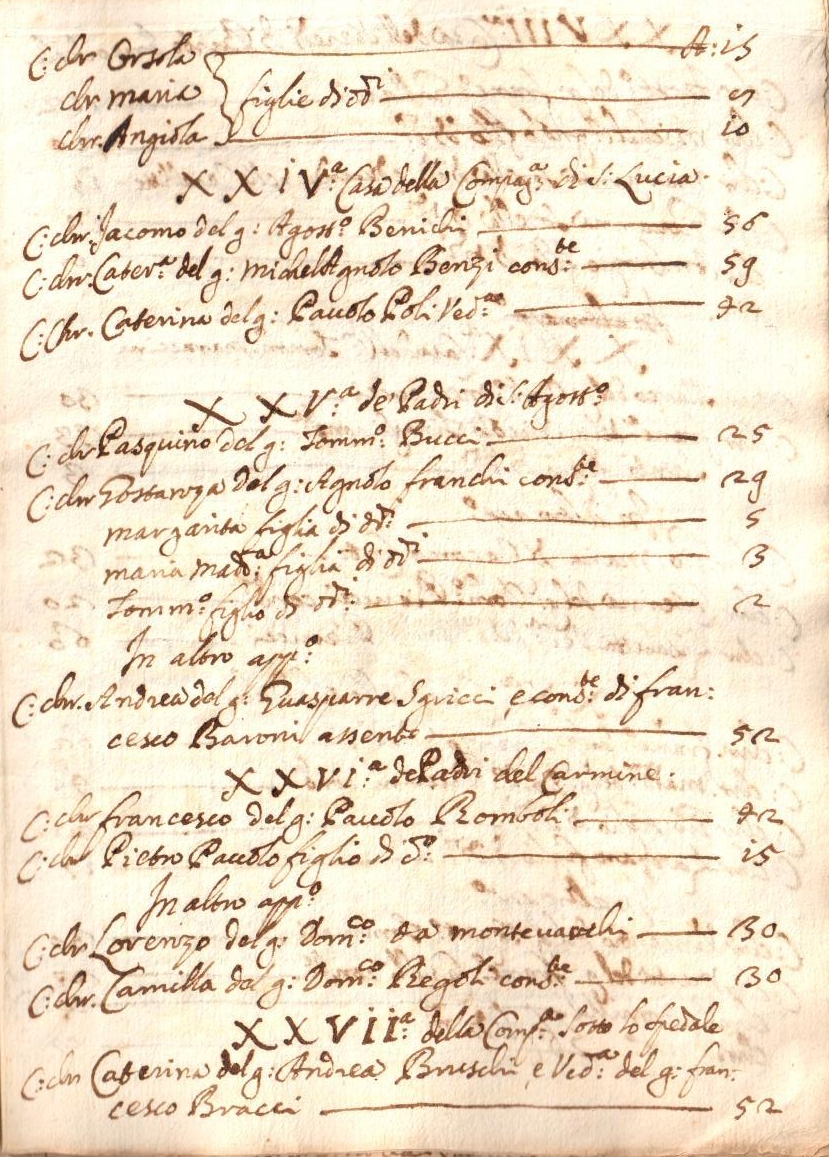 C: chr Orsola A: 15
chr. maria figlie di dti 9
chr. Angiola 10
XXIVa: Casa della Compagna: di S: Lucia.
C: chr. Jacomo del q: Agosto: Benichi 56
C: chr. Catera: del q: Michel Agnolo Benzi conste: 59
C: Chr. Caterina del q: Pavolo Poli Veda: 42
XXVa: de Padri di S: Agosto:
C: chr Pasquino del q: Tommo: Bucci 25
C: chr Gostanza del q: Agnolo franchi conste: 29
margarita figlia di dti: 5
maria Madda: figlia di dti: 3
Tommo: figlio di dti: 2
In altro appo:
C: chr. Andrea del q: Guasparre Sgricci e conste: di fran:
cesco Baroni assente 52
XXVIa: de Padri del Carmine.
C: chr francesco del q: Pavolo Romboli 42
C: chr Pietro Pavolo figlio di do: 15
In altro appo:
C: chr Lorenzo del q: Domco: da montevarchi 30
C: chr. Camilla del q: Domco: Regoli conste: 30
XXVIIa: della Compa: Sotto lo spedale
C: chr Caterina del q: Andrea Bruschi e Veda: del q: fran:
cesco Bracci 52